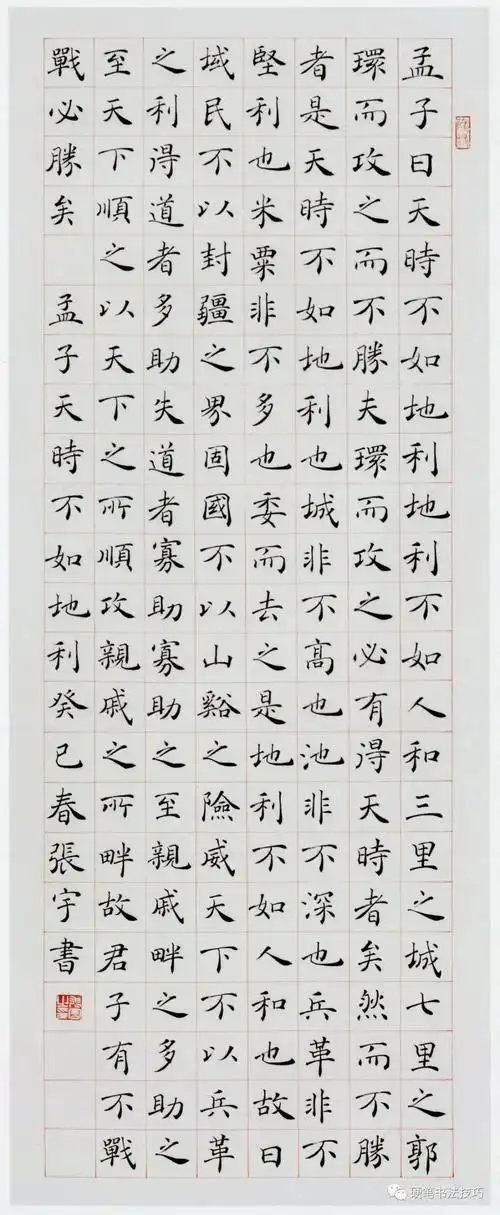 孟子曰天時不如地利地利不如人和三里之城七里之郭
環而攻之而不勝夫環而攻之必有得天時者矣然而不勝
者是天時不如地利也城非不髙也池非不深也兵革非不
堅利也米粟非不多也委而去之是地利不如人和也故曰
域民不以封疆之界固國不以山谿之險威天下不以兵革
之利得道者多助失道者寡助寡助之至親戚畔之多助之
至天下順之以天下之所順攻親戚之所畔故君子有不戰
戰必勝矣 孟子天時不如地利癸巳春張宇書
硬笔书法技巧